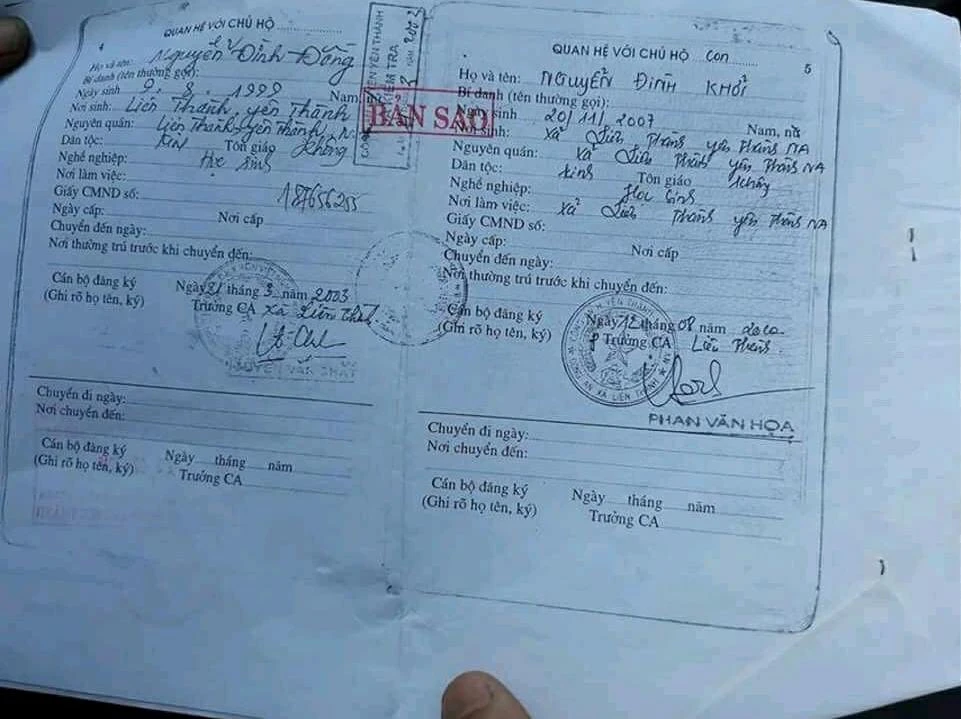 4
QUAN HỆ VỚI CHỦ HỘ
Họ và tên: Nguyễn Đình Đồng
Bí danh (tên thường gọi):
Ngày sinh 9. 8. 1999 Nam,
Nơi sinh: Liên Thành, yên Thành
Nguyên quán: Liên Thành, yên Thành,
Dân tộc: Tôn giáo không
Nghề nghiệp: Học sinh
Nơi làm việc:
Giấy CMND số: 187656255
Ngày cấp: Nơi cấp
Chuyển đến ngày:
Nơi thường trú trước khi chuyển đến:
Cán bộ đăng ký
(Ghi rõ họ tên, ký)
Ngày tháng 3 năm 2003
Trưởng CA xã Liên Thành
Chuyển đi ngày:
Nơi chuyển đến:
Cán bộ đăng ký
(Ghi rõ họ tên, ký)
Ngày tháng năm
Trưởng CA
YÊN THÀNH
KIỂM TRA
BẢN SAO
5
QUAN HỆ VỚI CHỦ HỘ con
Họ và tên: NGUYỄN ĐÌNH KHÔI
Bí danh (tên thường gọi):
Ngày sinh 20/11/2007 Nam, nữ
Nơi sinh: Xã Liên Thành yên Thành NA
Nguyên quán: Xã Liên Thành yên Thành NA
Dân tộc: kinh Tôn giáo không
Nghề nghiệp: Học sinh
Nơi làm việc: Xã Liên Thành yên Thành NA
Giấy CMND số:
Ngày cấp: Nơi cấp
Chuyển đến ngày:
Nơi thường trú trước khi chuyển đến:
Cán bộ đăng ký
(Ghi rõ họ tên, ký)
Ngày 12 tháng 08 năm
Trưởng CA Liên Thành
CÔNG AN XÃ LIÊN THÀNH
PHAN VĂN HỌA
Chuyển đi ngày:
Nơi chuyển đến:
Cán bộ đăng ký
(Ghi rõ họ tên, ký)
Ngày tháng năm
Trưởng CA